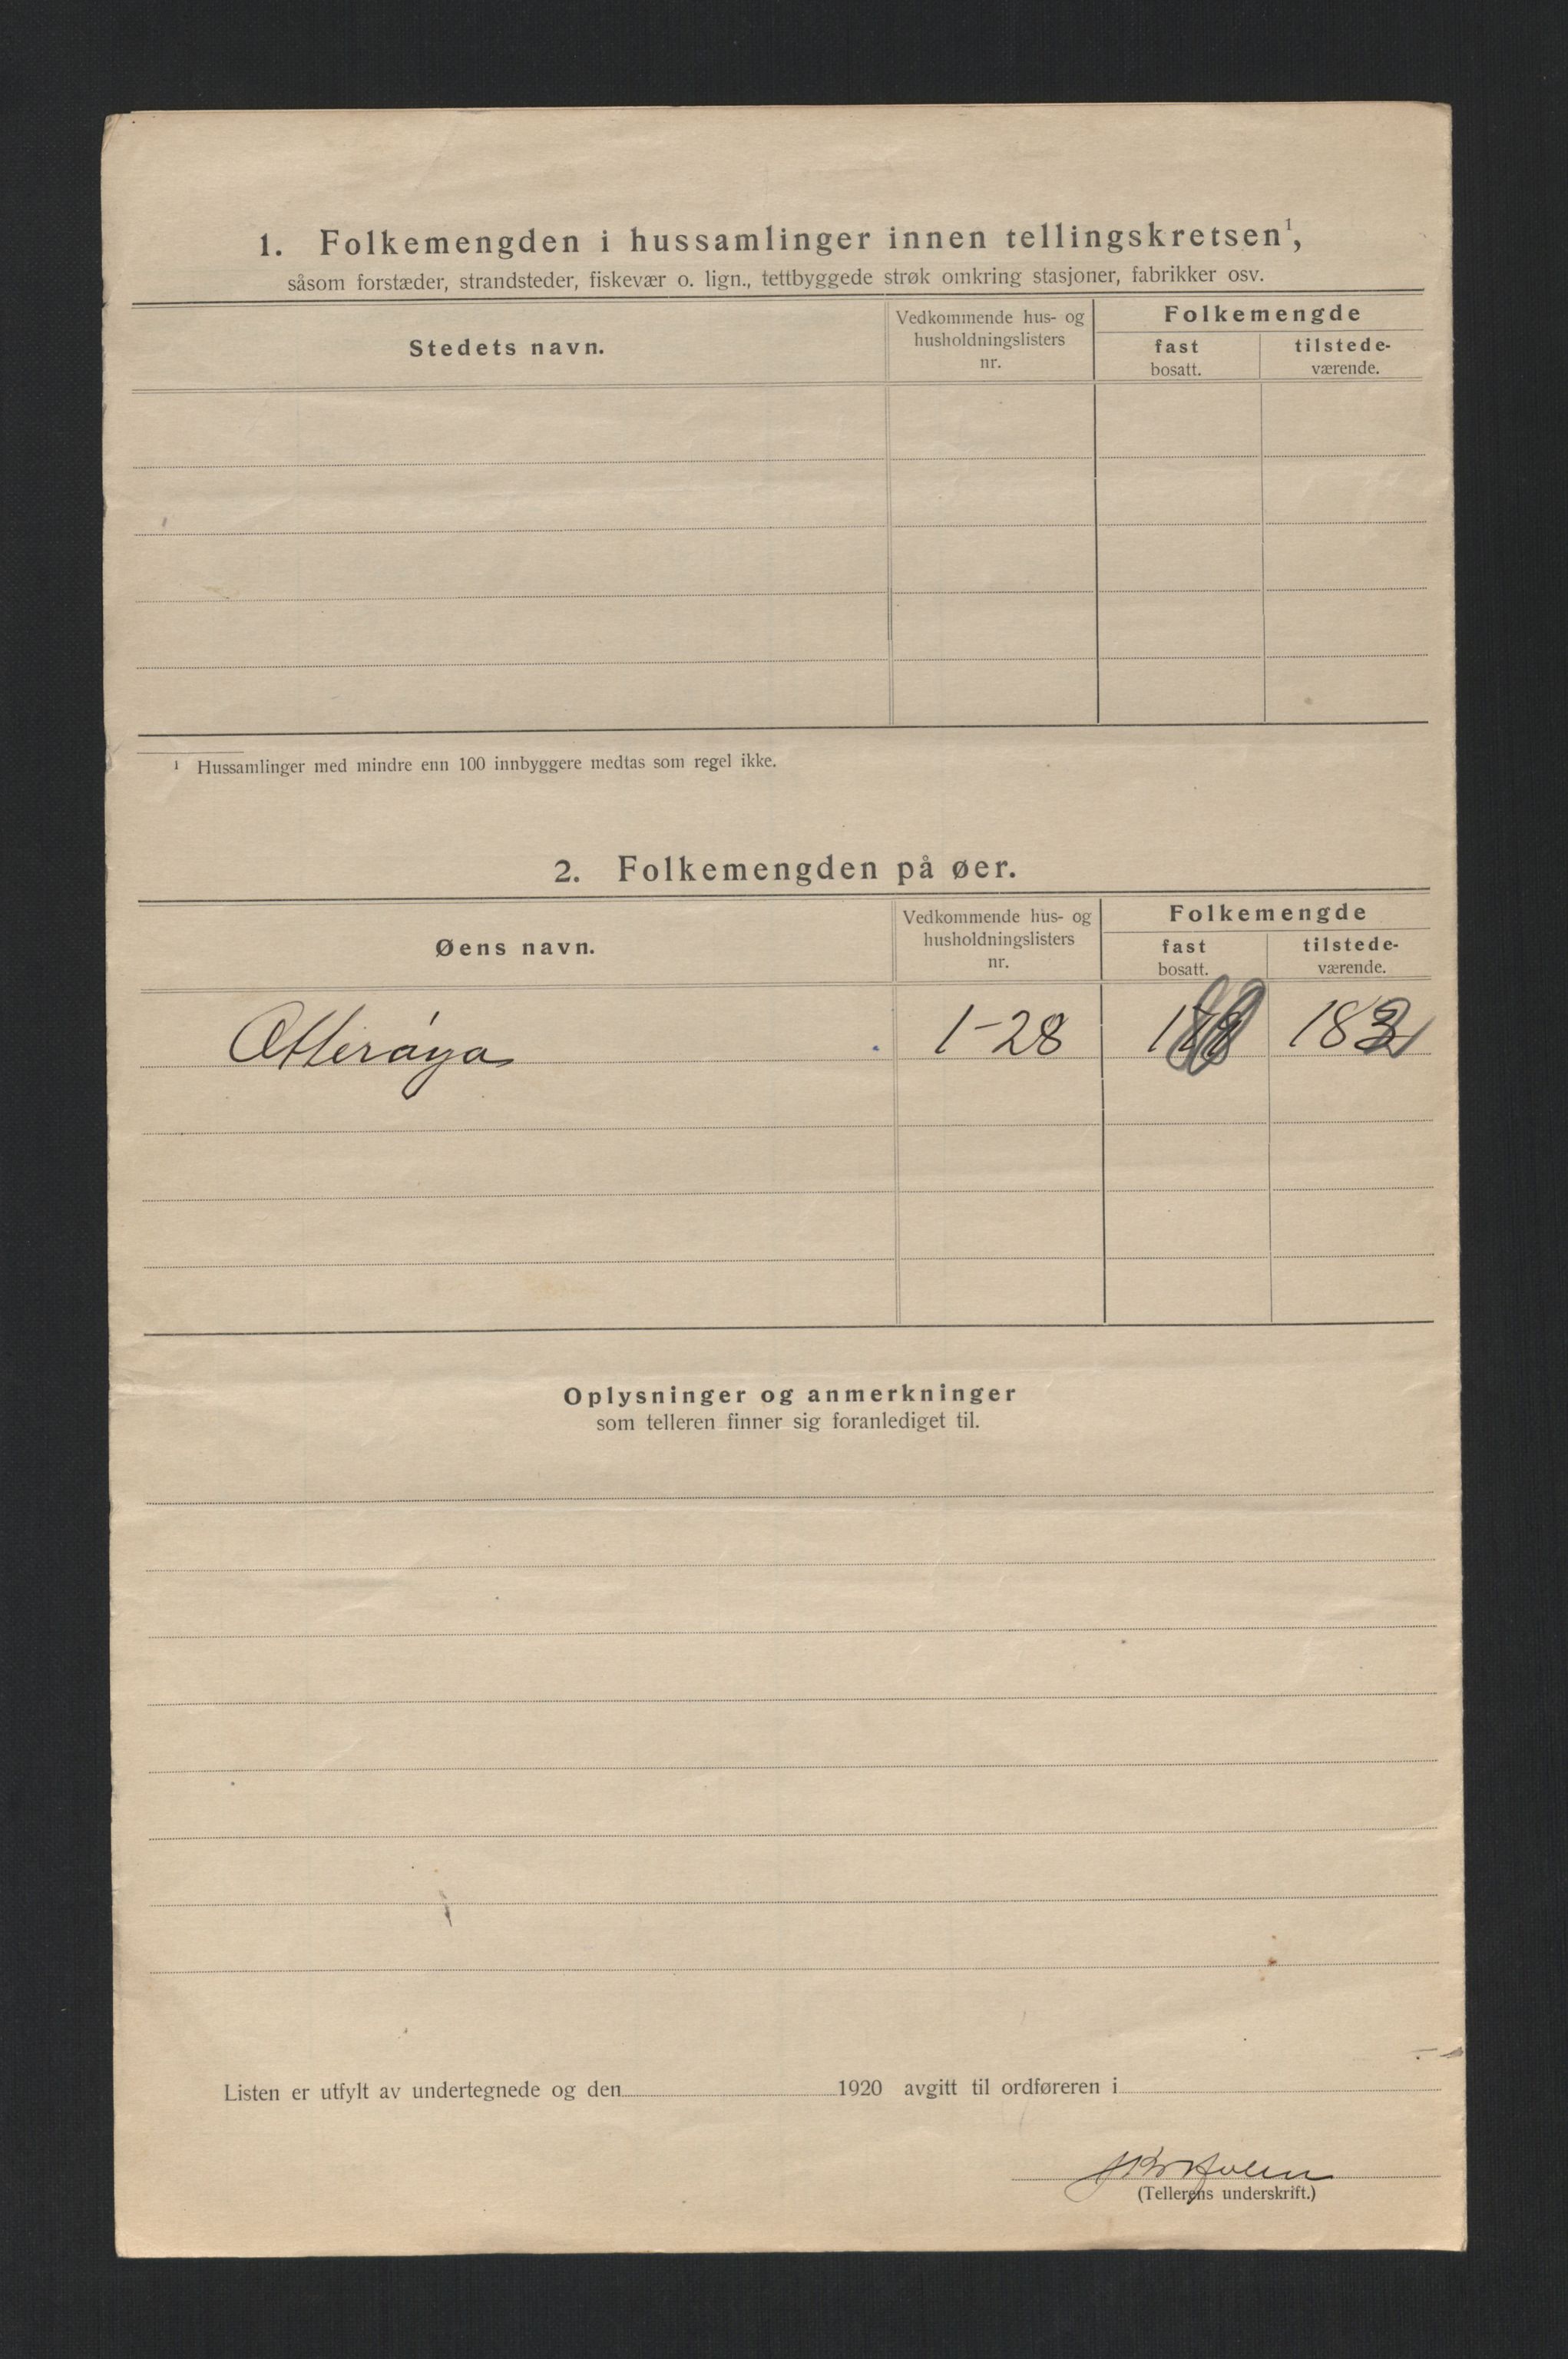 1. Folkemengden i hussamlinger innen tellingskretsen¹,
såsom forstæder, strandsteder, fiskevær o. lign., tettbyggede strøk omkring stasjoner, fabrikker osv.
Stedets navn.
Vedkommende hus- og
husholdningslisters
nr.
Folkemengde
fast
bosatt.
tilstede-
værende.
¹ Hussamlinger med mindre enn 100 innbyggere medtas som regel ikke.
2. Folkemengden på øer.
Øens navn.
Vedkommende hus- og
husholdningslisters
nr.
Folkemengde
fast
bosatt.
tilstede-
værende.
Otterøya 1-28
Oplysninger og anmerkninger
som telleren finner sig foranlediget til.
Listen er utfylt av undertegnede og den 1920 avgitt til ordføreren i
(Tellerens underskrift.)